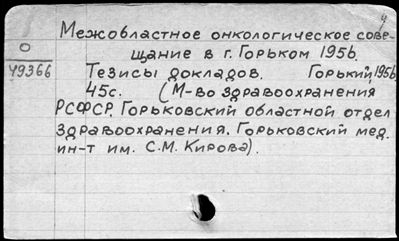 4
Межобластное онкологическое сове-
щание в г. Горьком 1956.
О
49366
Тезисы докладов. Горький, 1956.
45с. (М-во здравоохранения
РСФСР. Горьковский областной отдел
здравоохранения. Горьковский мед.
ин-т им. С.М. Кирова).